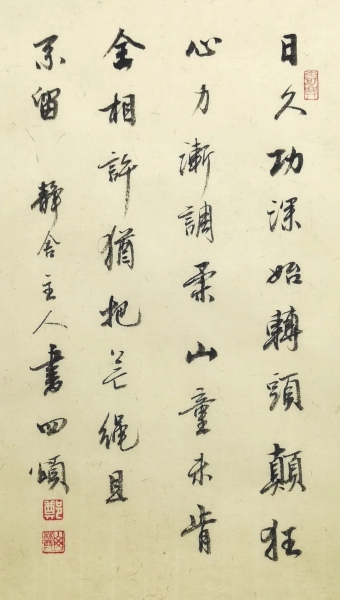 日久功深始轉頭顛狂
心力漸調柔山童未肯
全相許猶把芒繩且
系留 靜舍主人書四頌